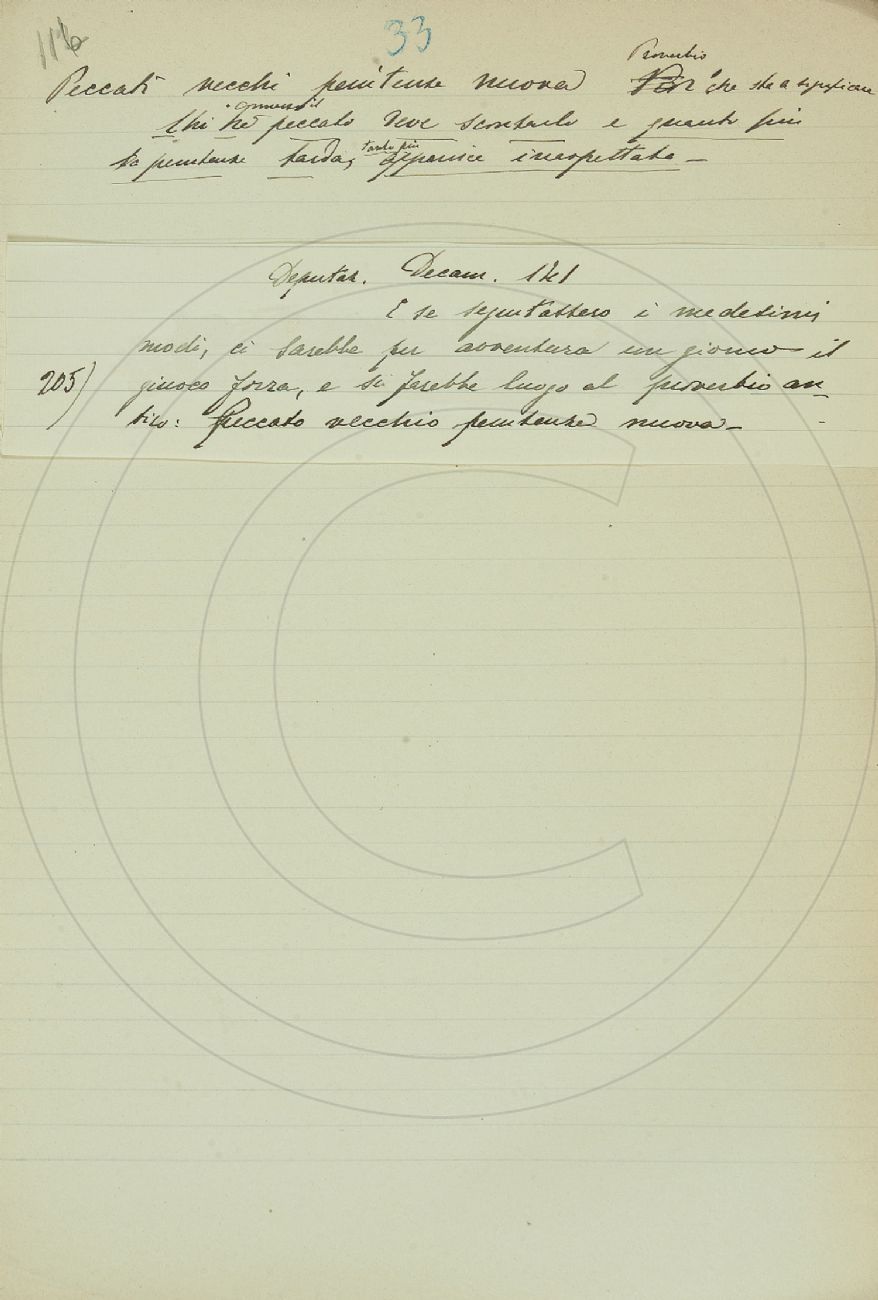 116
33
Proverbio
Peccati vecchi penitenze nuova che sta a significare
commesso il
Chi ha peccato deve scontarlo e quanto più
tanto più
la penitenza tarda, apparisce inaspettata —
Deputaz. Decam. 141
E se seguitassero i medesimi
modi, ci sarebbe per avventura un giorno il
205) giuoco forza, e si farebbe luogo al proverbio an-
tico: Peccato vecchio penitenza nuova —